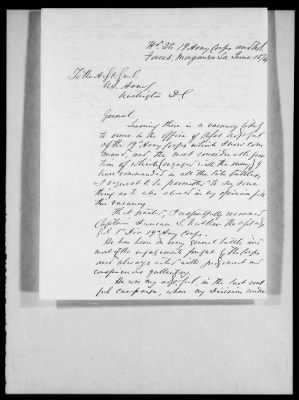 Hd. Qrs. 19th Army Corps and U.S.
Forces, Morganza La June 15/64
To the Adjt. Genl.
U.S. Army
Washington D.C
General,
Learning there is a vacancy likely
to occur in the office of Asst Adjt Genl
of the 19th Army Corps which I now com
mand, and the most considerable por
tion of which engaged with the enemy I
have commanded in all the late battles,
I request to be permitted to say some
thing as to who should in my opinion fill
this vacancy.
I respectfully recommend
Captain Duncan S. Walker
Genl 1st Div 19th Army Corps.
He has been in every general battle and
most of the engagements fought by the Corps
and always acted with judgement and
conspicuous gallantry.
He was my adjt genl. in the last
campaign, when my Division